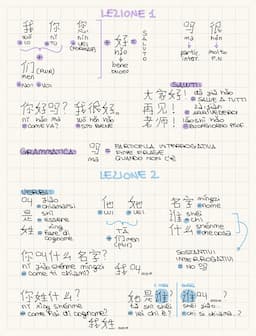 LEZIONE 1
我 你 您
wǒ nǐ nín
IO TU LEI
(FORMALE)
+ 好
hǎo
bene
buono
SALUTO
吗 很
mā hěn
partic. molto
inter. P.N
们 (PLUR)
men
NOI VOI
SALUTI
大家好!
dà jiā hǎo
SALVE A TUTTI
再见!
zài jiàn
ARRIVEDERCI
老师!
lǎo shī
你好吗? 我很好.
nǐ hǎo mā wǒ hěn hǎo
COME VA? STO BENE
GRAMMATICA
吗
mā
PARTICELLA INTERROGATIVA
QUANDO NON C'È
LEZIONE 2
VERBI
叫 jiào
chiamarsi
是 shì
essere
姓 xìng
fare di
cognome
他 她
LUI LEI
们
tāmen
(plur)
名字
nome
谁 shéi
chi
什么 shénme
che cosa
SOSTANTIVI
INTERROGATIVI
NO 吗
你叫什么名字?
nǐ jiào shénme míngzi
come ti chiami?
我叫...
你姓什么?
nǐ xìng shénme
come fai di cognome?
我姓...
她是谁?
tā shì shéi
lei chi è?
谁叫...?
shéi jiào...
chi si chiama...?